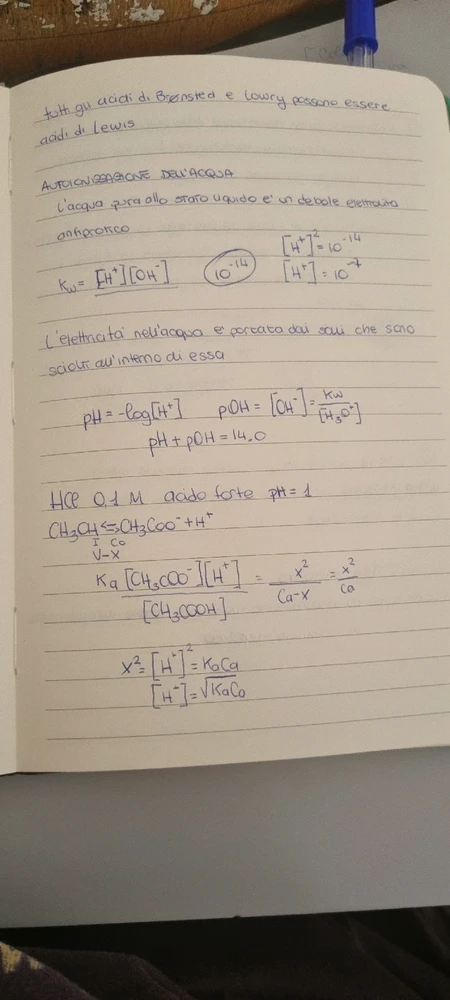 tutti gli acidi di Brønsted e Lowry possono essere
acidi di Lewis
AUTOIONIZZAZIONE DELL'ACQUA
L'acqua pura allo stato liquido e' un debole elettrolita
anfiprotico
Kw = [H⁺][OH⁻] 10⁻¹⁴ [H⁺]² = 10⁻¹⁴
[H⁺] = 10⁻⁷
L'elettricita' nell'acqua e' portata dai sali che sono
sciolti all'interno di essa
pH = -log[H⁺] pOH = [OH⁻] = Kw/[H₃O⁺]
pH + pOH = 14.0
HCl 0,1 M acido forte pH = 1
CH₃CH ⇆ CH₃COO⁻ + H⁺
I Co
V-X
Ka [CH₃COO⁻][H⁺]/[CH₃COOH] = x²/Ca-x = x²/Ca
x² = [H⁺]² = KaCa
[H⁺] = √KaCa